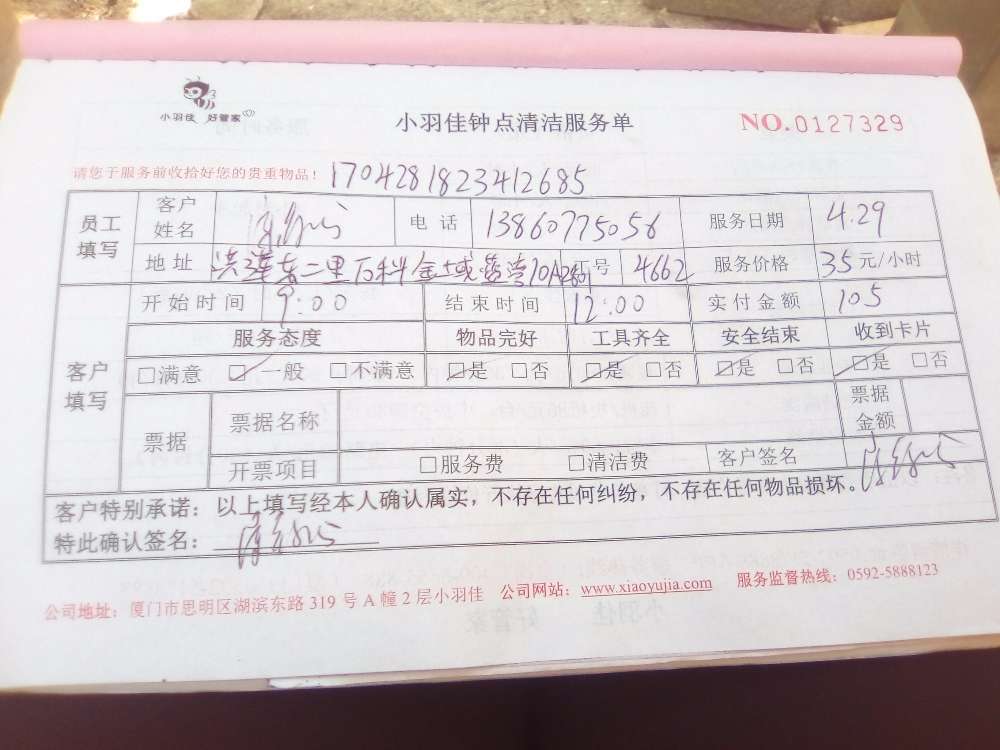 小羽佳 好管家
小羽佳钟点清洁服务单
NO.0127329
请您于服务前收拾好您的贵重物品! 1704281823412685
员工填写 客户姓名 电话 13860775056 服务日期 4.29
地址 洪莲东二里万科金域蓝湾10A2801 工号 4662 服务价格 35元/小时
客户填写 开始时间 9:00 结束时间 12:00 实付金额 105
服务态度 物品完好 工具齐全 安全结束 收到卡片
□满意 ☑一般 □不满意 ☑是 □否 ☑是 □否 ☑是 □否 ☑是 □否
票据 票据名称 票据金额
开票项目 □服务费 □清洁费 客户签名
客户特别承诺:以上填写经本人确认属实,不存在任何纠纷,不存在任何物品损坏。
特此确认签名:
公司地址:厦门市思明区湖滨东路319号A幢2层小羽佳 公司网站:www.xiaoyujia.com 服务监督热线:0592-5888123